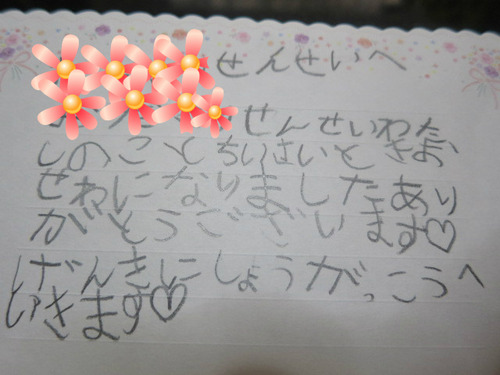 せんせいへ
せんせいわた
しのことちいさいときお
せわになりましたあり
がとうございます♡
げんきにしょうがっこうへ
いきます♡